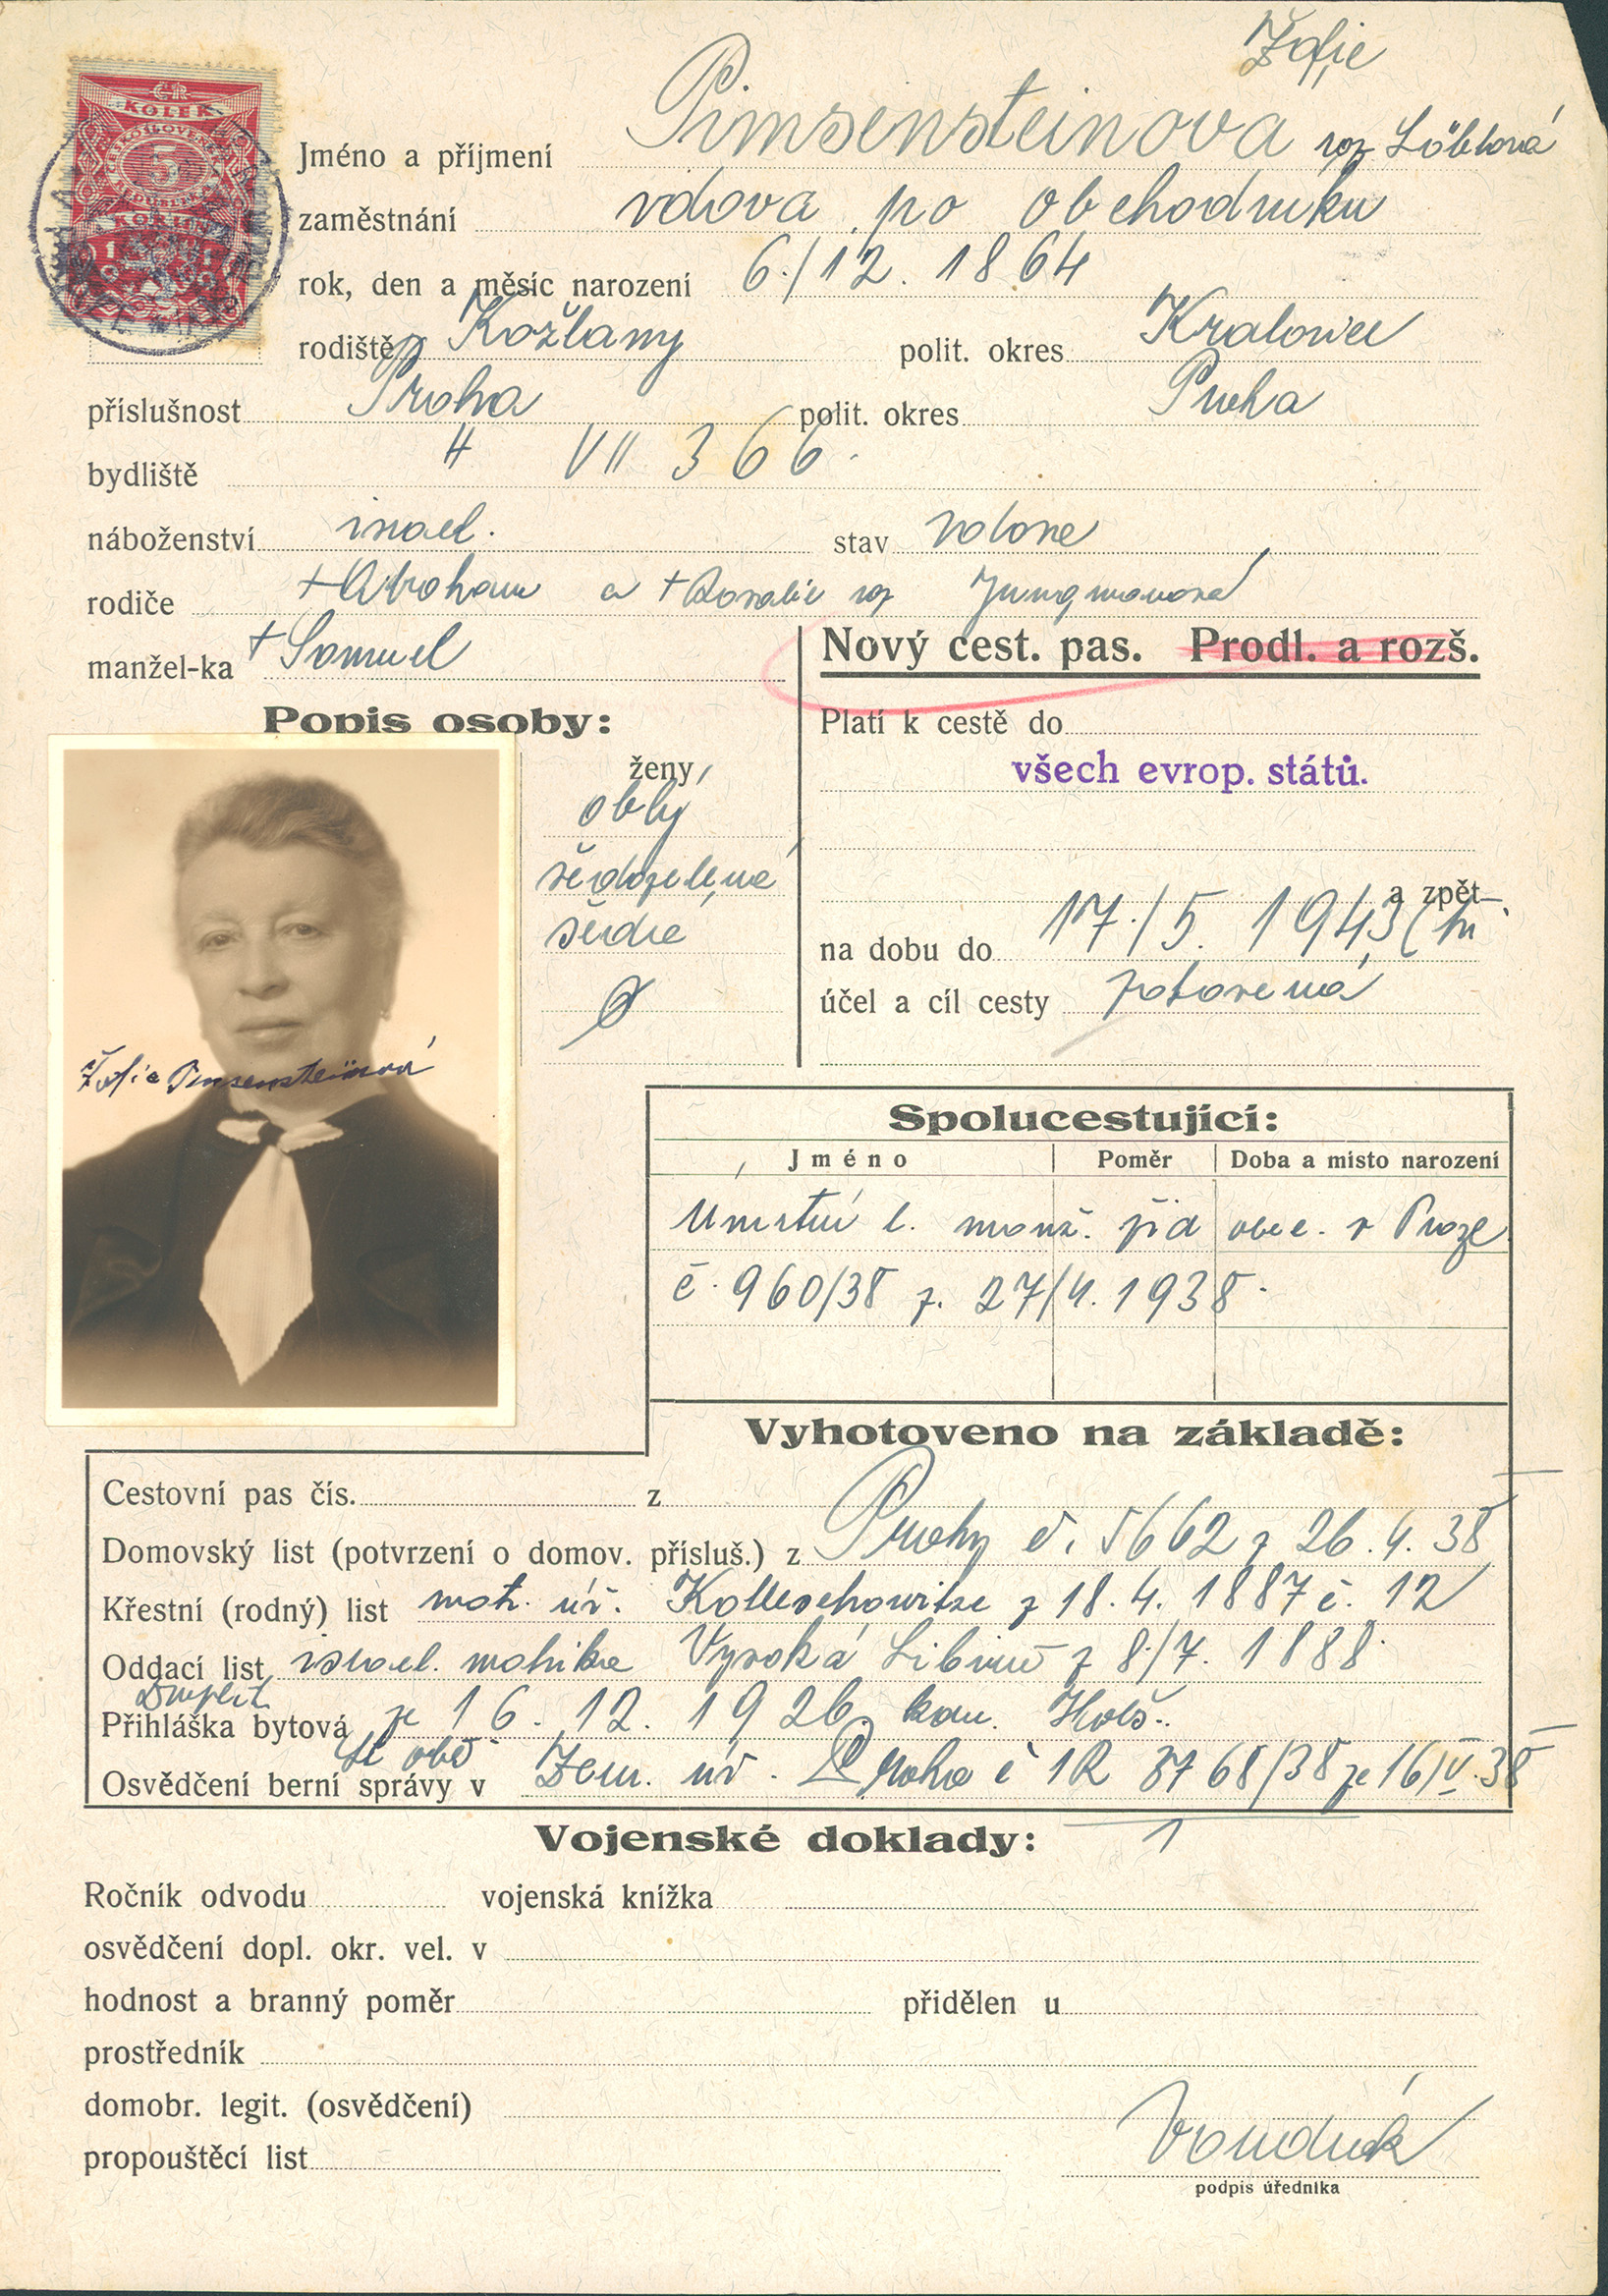 Žofie
Jméno a příjmení Pimsensteinova roz Löblová
zaměstnání vdova po obchodníku
rok, den a měsíc narození 6./12. 1864
rodiště Kožlany polit. okres Kralowec
příslušnost Praha polit. okres Praha
bydliště " VII 366.
náboženství israel. stav vdova
rodiče + Abraham a + Rosalie roz Jungmanová
manžel-ka + Samuel
Nový cest. pas. Prodl. a rozš.
Popis osoby:
Platí k cestě do
všech evrop. států.
ženy
oblý
šedozelené
šedé
a zpět
na dobu do 17./5. 1943
účel a cíl cesty zotavená
Žofie Pimsensteinová
KOLEK
5
KORUN
Spolucestující:
Jméno Poměr Doba a místo narození
Úmrtní l. manž. žid obec. v Praze
č. 960/38 z. 27/4. 1938.
Vyhotoveno na základě:
Cestovní pas čís. z
Domovský list (potvrzení o domov. přísluš.) z Prahy č. 5662 z 26.4.38
Křestní (rodný) list mat. úř. Kolleschowitze z 18.4. 1887 č. 12
Oddací list israel. matrika Vysoká Libině z 8/7. 1888
Přihláška bytová ze 16. 12. 1926 kom. Hols.
Osvědčení berní správy v Zem. úř. Praha č 1R 3768/38 ze 16/V.38
1
Vojenské doklady:
Ročník odvodu vojenská knížka
osvědčení dopl. okr. vel. v
hodnost a branný poměr přidělen u
prostředník
domobr. legit. (osvědčení)
propouštěcí list
podpis úředníka